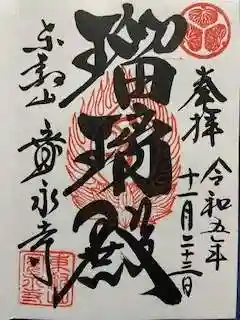 奉拝
令和五年
十一月二十三日
瑠璃殿
東叡山
寛永寺